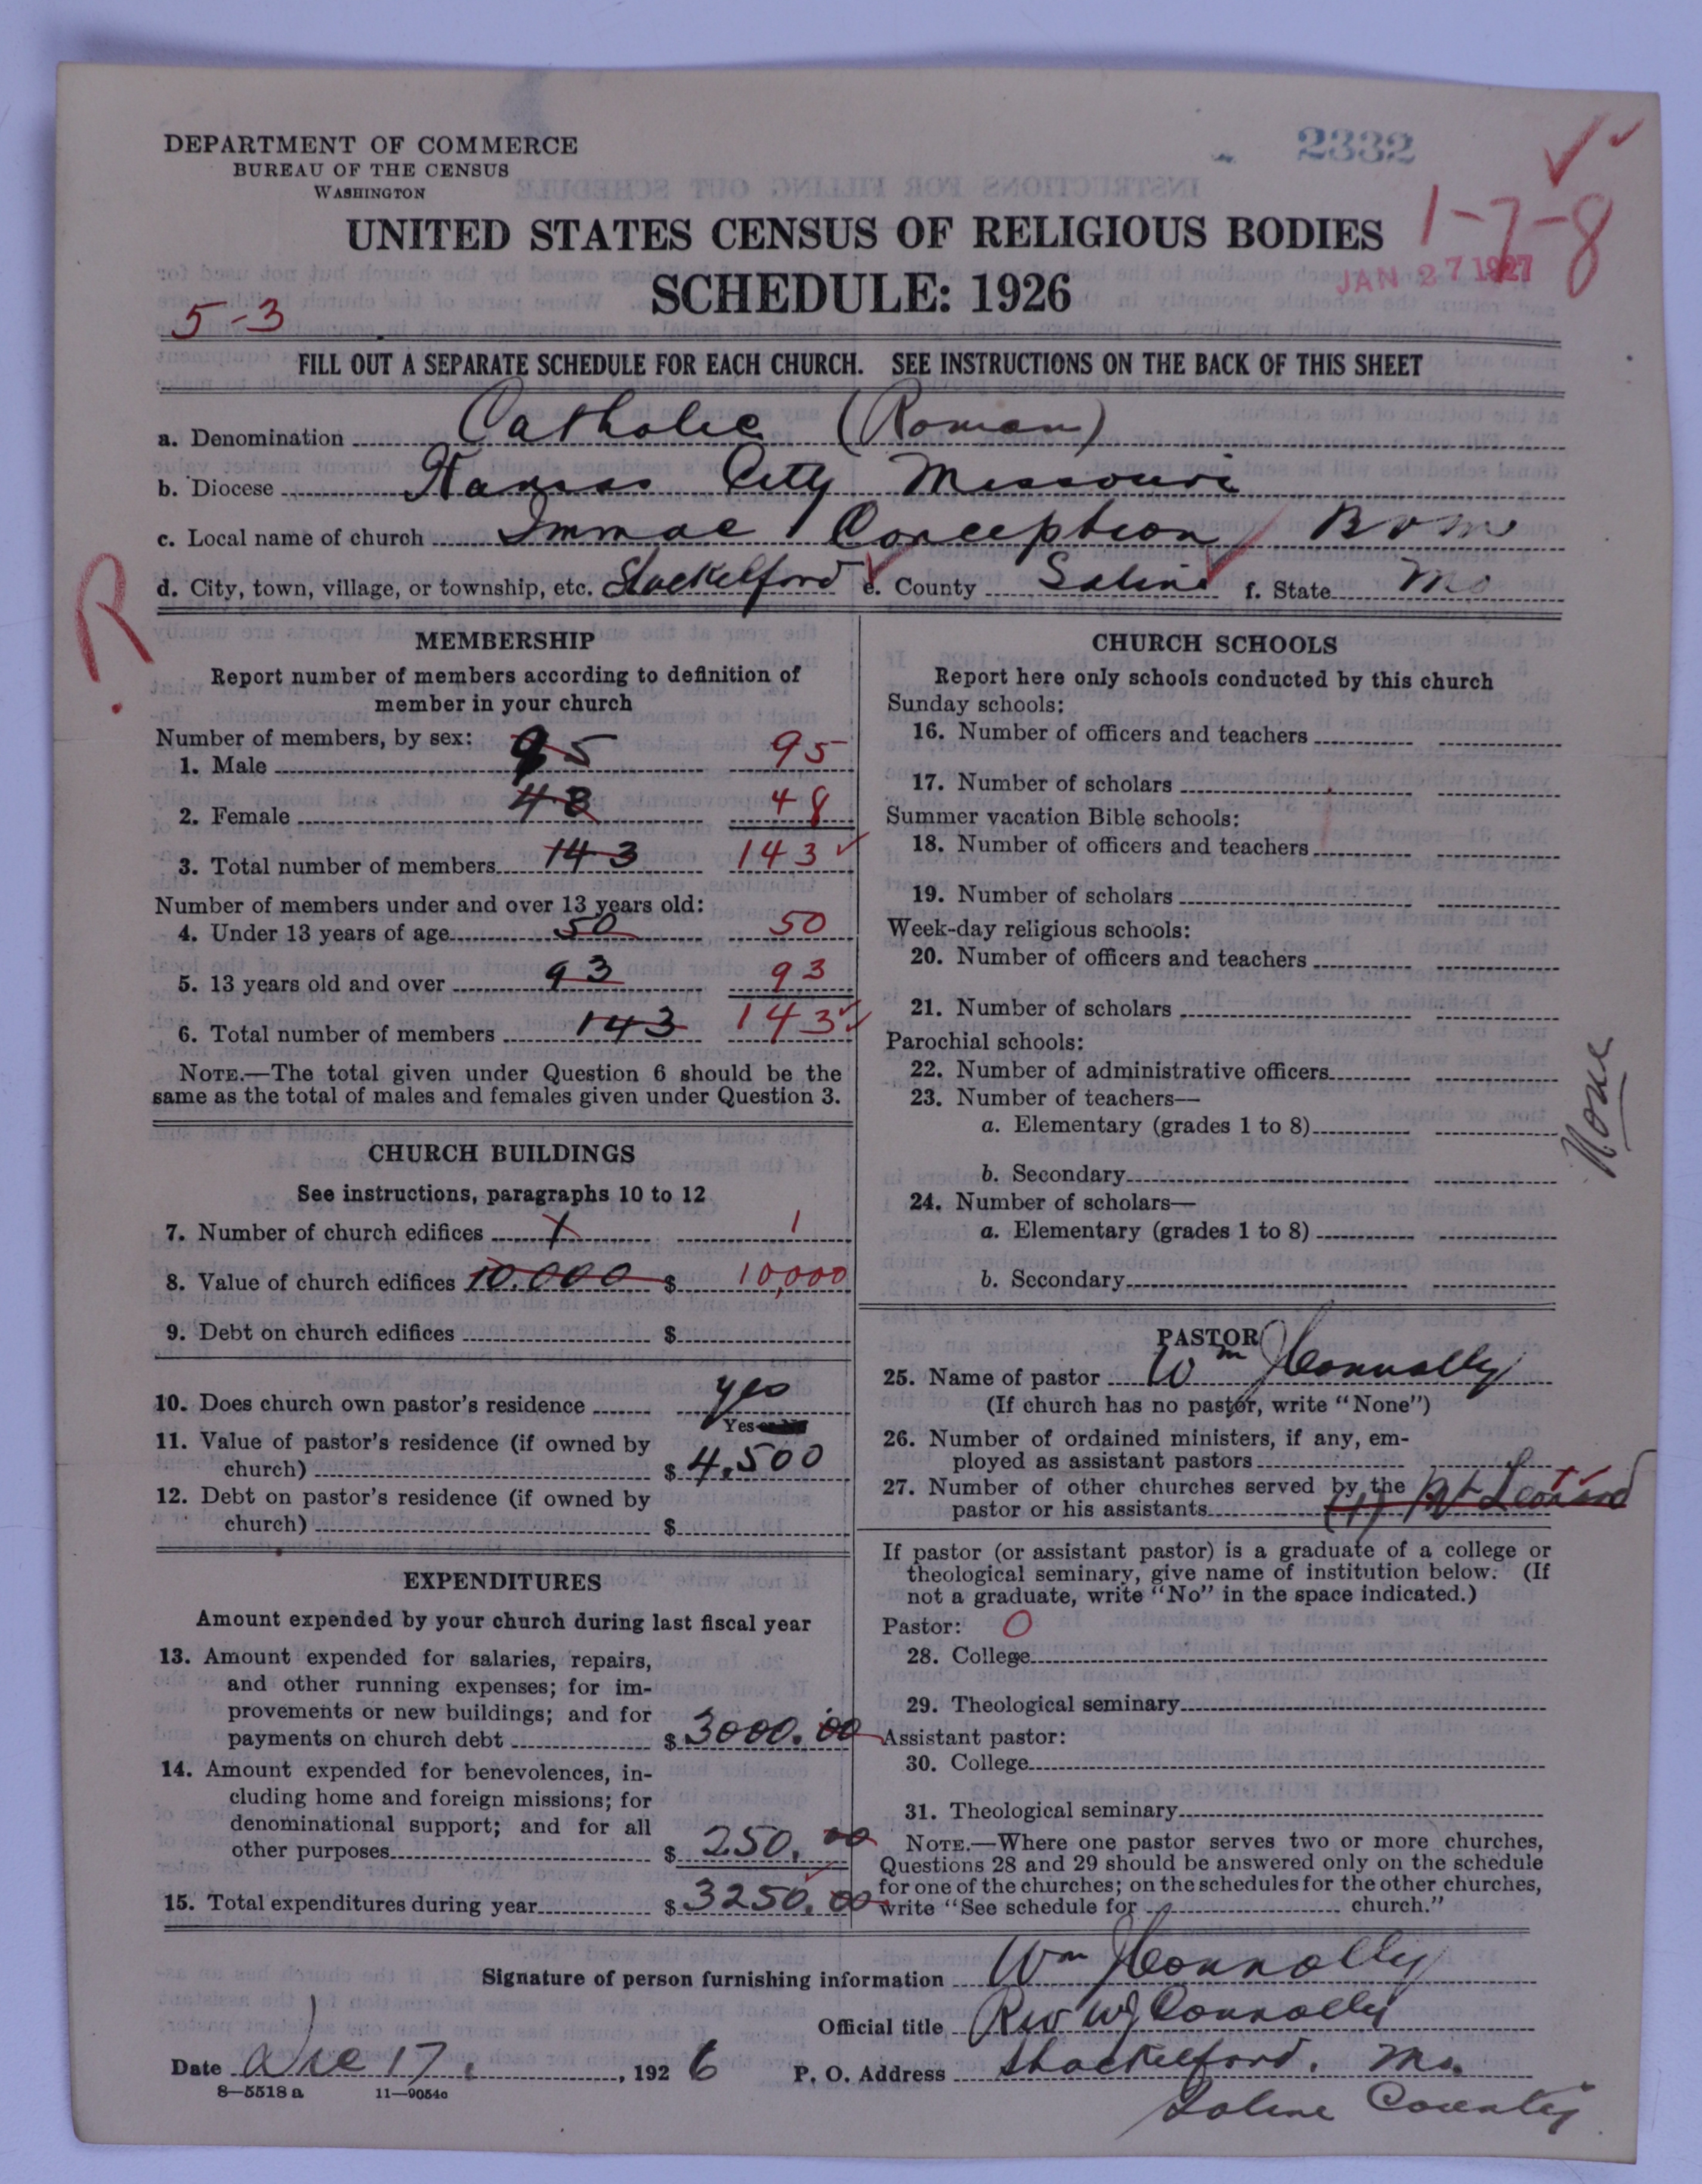 DEPARTMENT OF COMMERCE
BUREAU OF THE CENSUS
WASHINGTON
2332
UNITED STATES CENSUS OF RELIGIOUS BODIES
1-7-8
SCHEDULE: 1926
JAN 27 1927
5-3
FILL OUT A SEPARATE SCHEDULE FOR EACH CHURCH. SEE INSTRUCTIONS ON THE BACK OF THIS SHEET
a. Denomination Catholic (Roman)
b. Diocese Kansas City Missouri
c. Local name of church Immac Conception B V M
d. City, town, village, or township, etc. Shackelford e. County Saline f. State Mo
R
MEMBERSHIP
Report number of members according to definition of
member in your church
Number of members, by sex:
1. Male 95 95
2. Female 48 48
3. Total number of members 143 143
Number of members under and over 13 years old:
4. Under 13 years of age 50 50
5. 13 years old and over 93 93
6. Total number of members 143 143
NOTE.—The total given under Question 6 should be the
same as the total of males and females given under Question 3.
CHURCH BUILDINGS
See instructions, paragraphs 10 to 12
7. Number of church edifices 1 1
8. Value of church edifices 10.000 $ 10,000
9. Debt on church edifices $
10. Does church own pastor's residence yes
Yes
11. Value of pastor's residence (if owned by
church) $ 4,500
12. Debt on pastor's residence (if owned by
church) $
EXPENDITURES
Amount expended by your church during last fiscal year
13. Amount expended for salaries, repairs,
and other running expenses; for im-
provements or new buildings; and for
payments on church debt $ 3000.00
14. Amount expended for benevolences, in-
cluding home and foreign missions; for
denominational support; and for all
other purposes $ 250.00
15. Total expenditures during year $ 3250.00
CHURCH SCHOOLS
Report here only schools conducted by this church
Sunday schools:
16. Number of officers and teachers
17. Number of scholars
Summer vacation Bible schools:
18. Number of officers and teachers
19. Number of scholars
Week-day religious schools:
20. Number of officers and teachers
21. Number of scholars
Parochial schools:
22. Number of administrative officers
23. Number of teachers—
a. Elementary (grades 1 to 8)
b. Secondary
24. Number of scholars—
a. Elementary (grades 1 to 8)
b. Secondary
None
PASTOR
25. Name of pastor Wm J Connolly
(If church has no pastor, write "None")
26. Number of ordained ministers, if any, em-
ployed as assistant pastors
27. Number of other churches served by the
pastor or his assistants (1) Mt Leonard
If pastor (or assistant pastor) is a graduate of a college or
theological seminary, give name of institution below. (If
not a graduate, write "No" in the space indicated.)
Pastor: O
28. College
29. Theological seminary
Assistant pastor:
30. College
31. Theological seminary
NOTE.—Where one pastor serves two or more churches,
Questions 28 and 29 should be answered only on the schedule
for one of the churches; on the schedules for the other churches,
write "See schedule for church."
Signature of person furnishing information Wm J Connolly
Official title Rev W J Connolly
Date Dec 17, 1926 P. O. Address Shackelford, Mo.
8—5518 a 11—9054c
Saline County